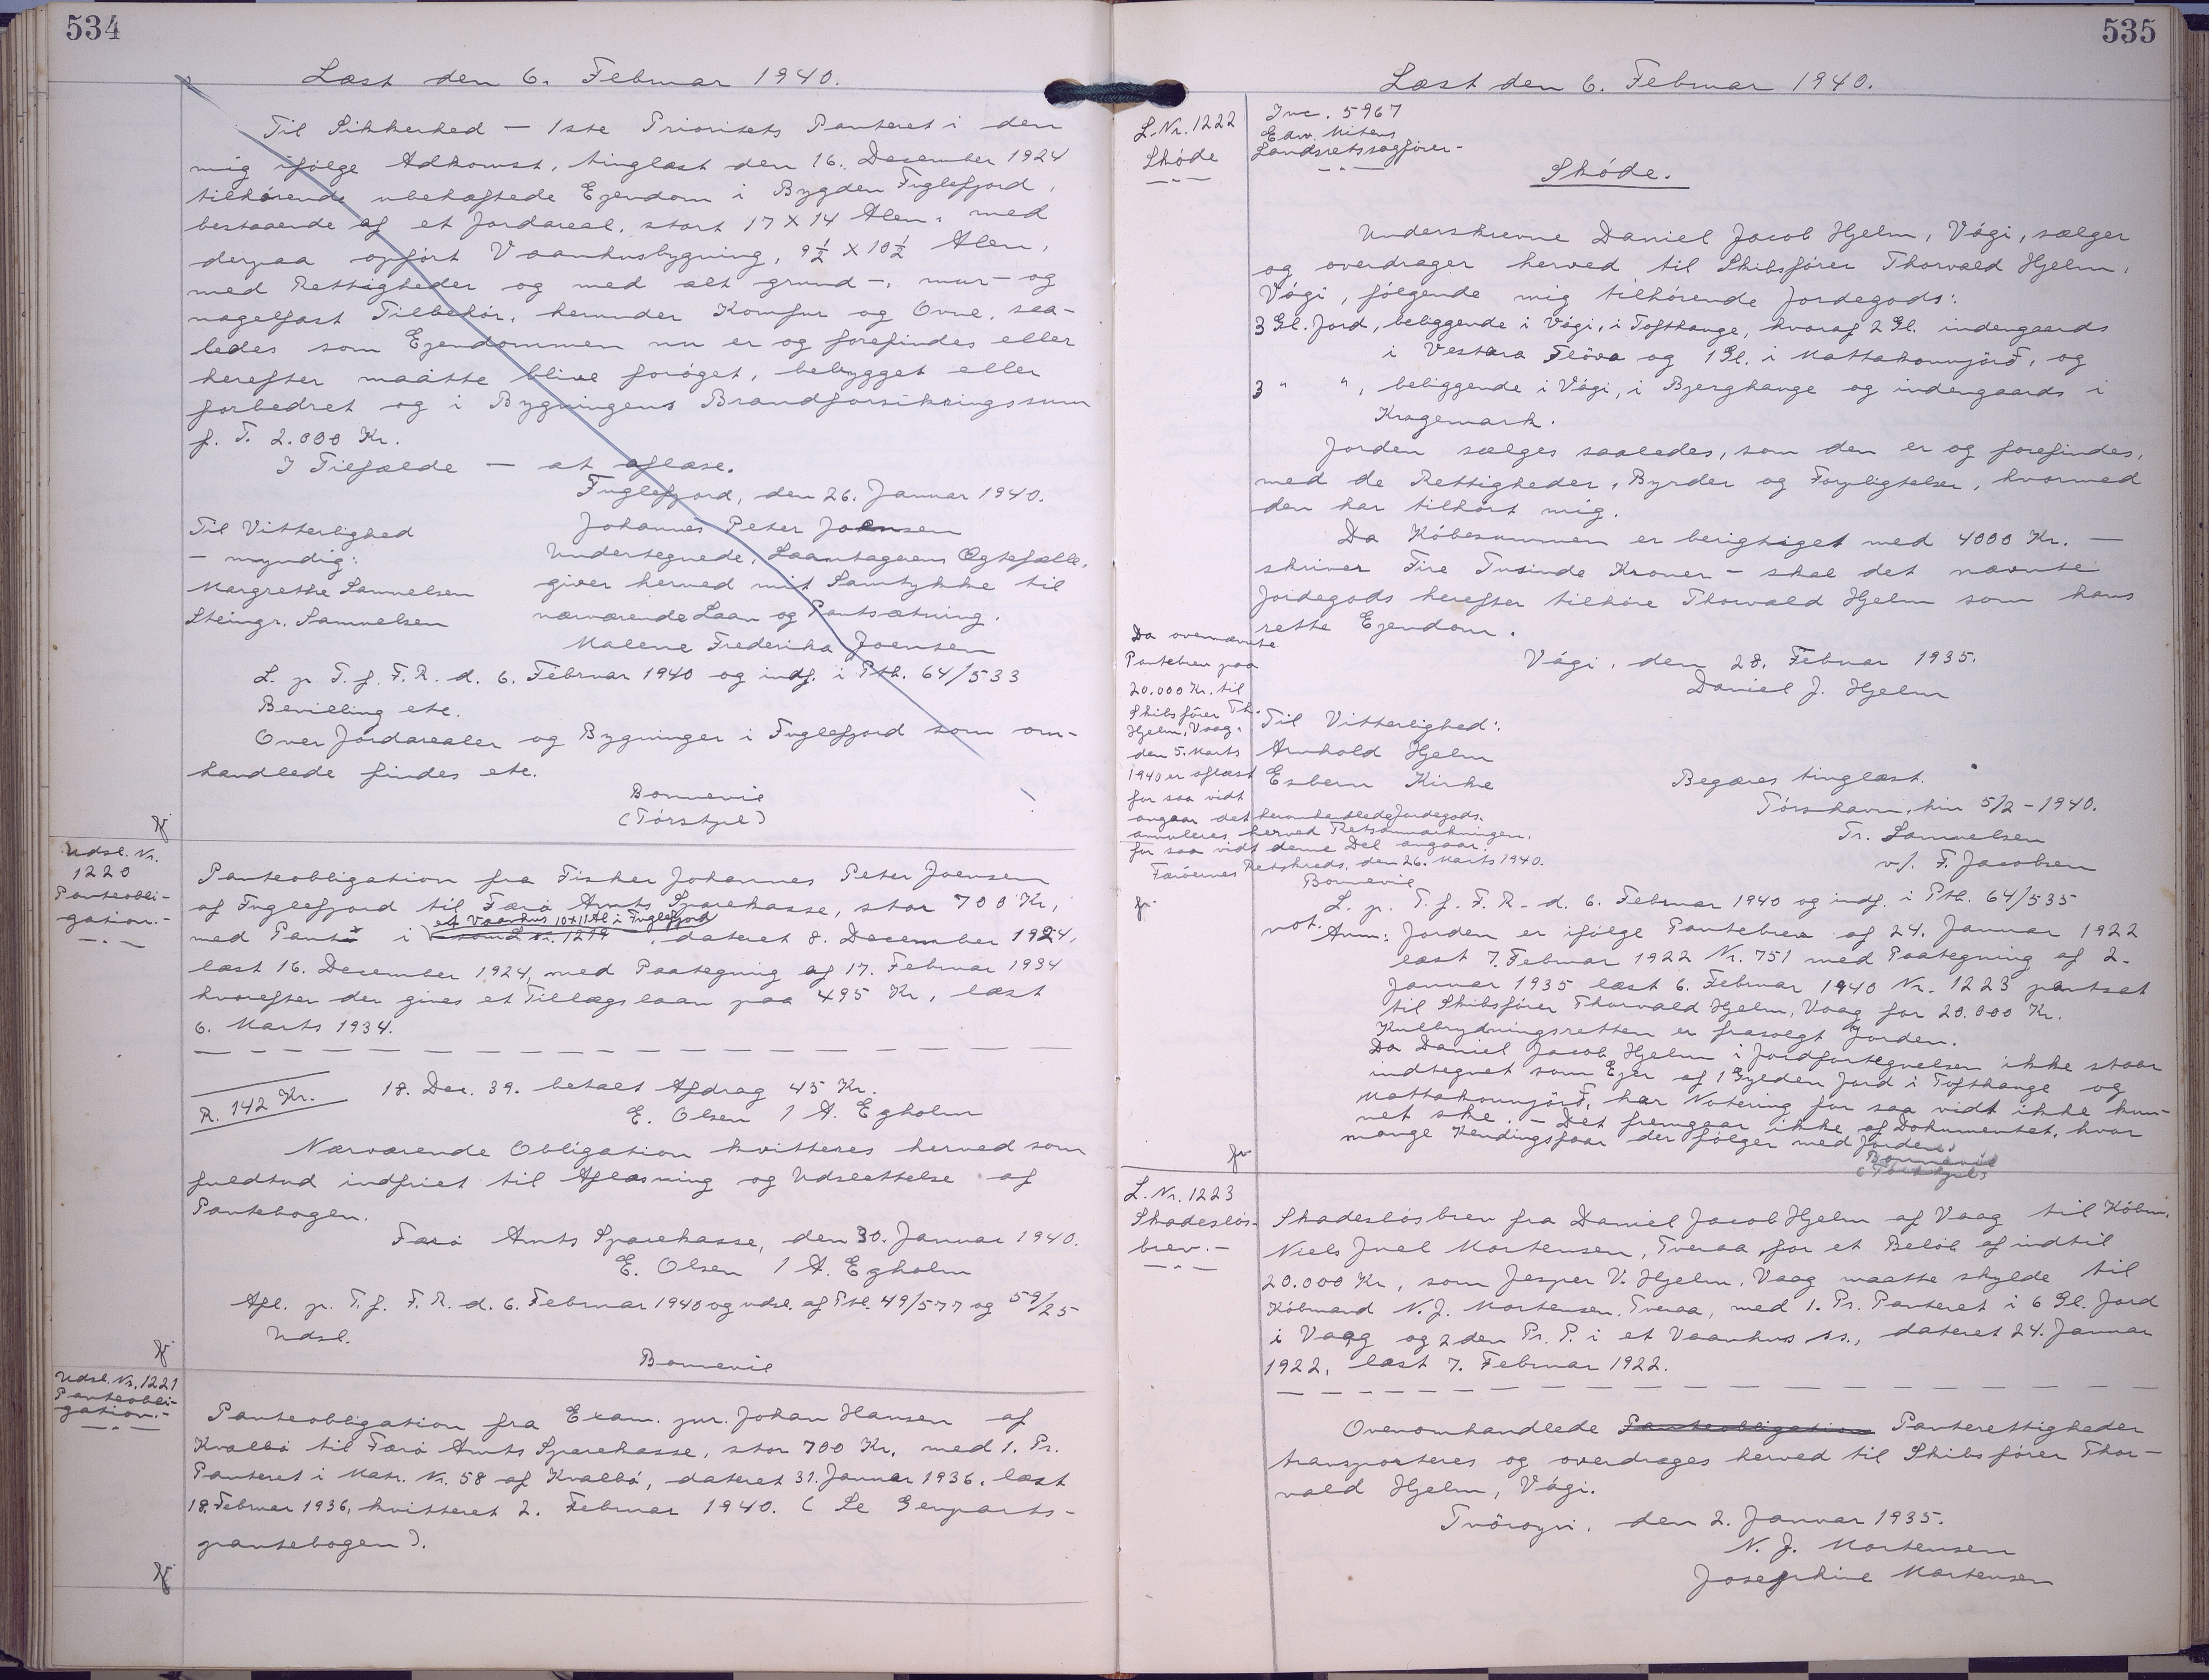 534
Læst den 6. Februar 1940.
Til Sikkerhed — 1ste Prioritets Panteret i den
mig ifølge Adkomst, tinglæst den 16. December 1924
tilhørende ubehæftede Ejendom i Bygden Fuglefjord,
bestaaende af et Jordareal, stort 17 X 14 Alen, med
derpaa opført Vaanhusbygning, 9½ X 10½ Alen,
med Rettigheder og med alt grund-, mur- og
nagelfast Tilbehør, herunder Komfur og Ovne, saa-
ledes som Ejendommen nu er og forefindes eller
herefter maatte blive forøget, bebygget eller
forbedret og i Bygningens Brandforsikringssum
f. T. 2.000 Kr.
I Tilfælde — at aflæse.
Fuglefjord, den 26. Januar 1940.
Til Vitterlighed
— myndig:
Margrethe Samuelsen
Steingr. Samuelsen
Johannes Peter Joensen
Undertegnede, Laantagerens Ægtefælle,
giver herved mit Samtykke til
nærværende Laan og Pantsætning.
Malene Frederika Joensen
L. p. T. f. F. R. d. 6. Februar 1940 og indf. i Ptb. 64/533
Bevilling etc.
Over Jordarealer og Bygninger i Fuglefjord som om-
handlede findes etc.
Bonnevie
(Tórstjel)
Udsl. Nr.
1220
Panteobli-
gation.-
Panteobligation fra Fisker Johannes Peter Joensen
af Fuglefjord til Færø Amts Sparekasse, stor 700 Kr,
et Vaanhus 10x11 Al i Fuglefjord
med Pant i som L Nr. 1219, dateret 8. December 1924,
læst 16. December 1924, med Paategning af 17. Februar 1934
hvorefter der gives et Tillægslaan paa 495 Kr, læst
6. Marts 1934.
R. 142 Kr.
18. Dec. 39. betalt Afdrag 45 Kr.
E. Olsen / A. Egholm
Nærværende Obligation kvitteres herved som
fuldtud indfriet til Aflæsning og Udslettelse af
Pantebogen.
Færø Amts Sparekasse, den 30. Januar 1940.
E. Olsen / A. Egholm
Afl. p. T. f. F. R. d. 6. Februar 1940 og udsl. af Ptb. 49/577 og 59/25
Udsl.
Bonnevie
Udsl. Nr. 1221
Panteobli-
gation.-
Panteobligation fra Exam. jur. Johan Hansen af
Kvalbø til Færø Amts Sparekasse, stor 700 Kr, med 1. Pr.
Panteret i Matr. Nr. 58 af Kvalbø, dateret 31. Januar 1936, læst
18. Februar 1936, kvitteret 2. Februar 1940. (Se Genparts-
pantebogen).
535
Læst den 6. Februar 1940.
L. Nr. 1222
Skøde
Inc. 5967
Edw. Mitens
Landsretssagfører-
Skøde.
Underskrevne Daniel Jacob Hjelm, Vági, sælger
og overdrager herved til Skibsfører Thorvald Hjelm,
Vági, følgende mig tilhørende Jordegods:
3 Gl. Jord, beliggende i Vági, i Tofthauge, hvoraf 2 Gl. indengaards
i Vestara Fløva og 1 Gl. i Mattakonnjørð, og
3 " ", beliggende i Vági, i Bjerghauge og indengaards i
Kragemark.
Jorden sælges saaledes, som den er og forefindes,
med de Rettigheder, Byrder og Forpligtelser, hvormed
den har tilhørt mig.
Da Købesummen er berigtiget med 4000 Kr. —
skriver Fire Tusinde Kroner — skal det nævnte
Jordegods herefter tilhøre Thorvald Hjelm som hans
rette Ejendom.
Vági, den 28. Februar 1935.
Daniel J. Hjelm
Til Vitterlighed:
Arnhold Hjelm
Esbern Kirke
Begæres tinglæst.
Tórshavn, hin 5/2 - 1940.
Tr. Samuelsen
v/. F. Jacobsen
Da ovennævnte
Pantebrev paa
20.000 Kr. til
Skibsfører Th.
Hjelm, Vaag,
den 5. Marts
1940 er aflæst
for saa vidt
angaar det heromhandlede Jordegods,
annuleres herved Retsanmærkningen,
for saa vidt denne Del angaar.
Færøernes Retskreds, den 26. Marts 1940.
Bonnevie
L. p. T. f. F. R. d. 6. Februar 1940 og indf. i Ptb. 64/535
not. Anm: Jorden er ifølge Pantebrev af 24. Januar 1922
læst 7. Februar 1922 Nr. 751 med Paategning af 2.
Januar 1935 læst 6. Februar 1940 Nr. 1223 pantsat
til Skibsfører Thorvald Hjelm, Vaag for 20.000 Kr.
Kulbrydningsretten er frasolgt Jorden.
Da Daniel Jacob Hjelm i Jordfortegnelsen ikke staar
indtegnet som Ejer af 1 Gylden Jord i Tofthauge og
Mattakonnjørð, har Notering for saa vidt ikke kun-
net ske. - Det fremgaar ikke af Dokumentet, hvor
mange Kendingsfaar der følger med Jorden.
Bonnevie
(Tórstjel)
L. Nr. 1223
Skadesløs-
brev.-
Skadesløsbrev fra Daniel Jacob Hjelm af Vaag til Købm.
Niels Juel Mortensen, Tveraa for et Beløb af indtil
20.000 Kr, som Jesper V. Hjelm, Vaag maatte skylde til
Købmand N. J. Mortensen, Tveraa, med 1. Pr. Panteret i 6 Gl. Jord
i Vaag og 2den Pr. P. i et Vaanhus ss., dateret 24. Januar
1922, læst 7. Februar 1922.
Ovenomhandlede Panteobligation Panterettigheder
transporteres og overdrages herved til Skibsfører Thor-
vald Hjelm, Vági.
Tvöroyri, den 2. Januar 1935.
N. J. Mortensen
Josephine Mortensen